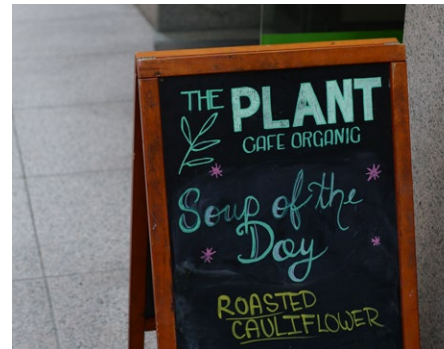 THE PLANT
CAFE ORGANIC
Soup of the
Day
ROASTED
CAULIFLOWER